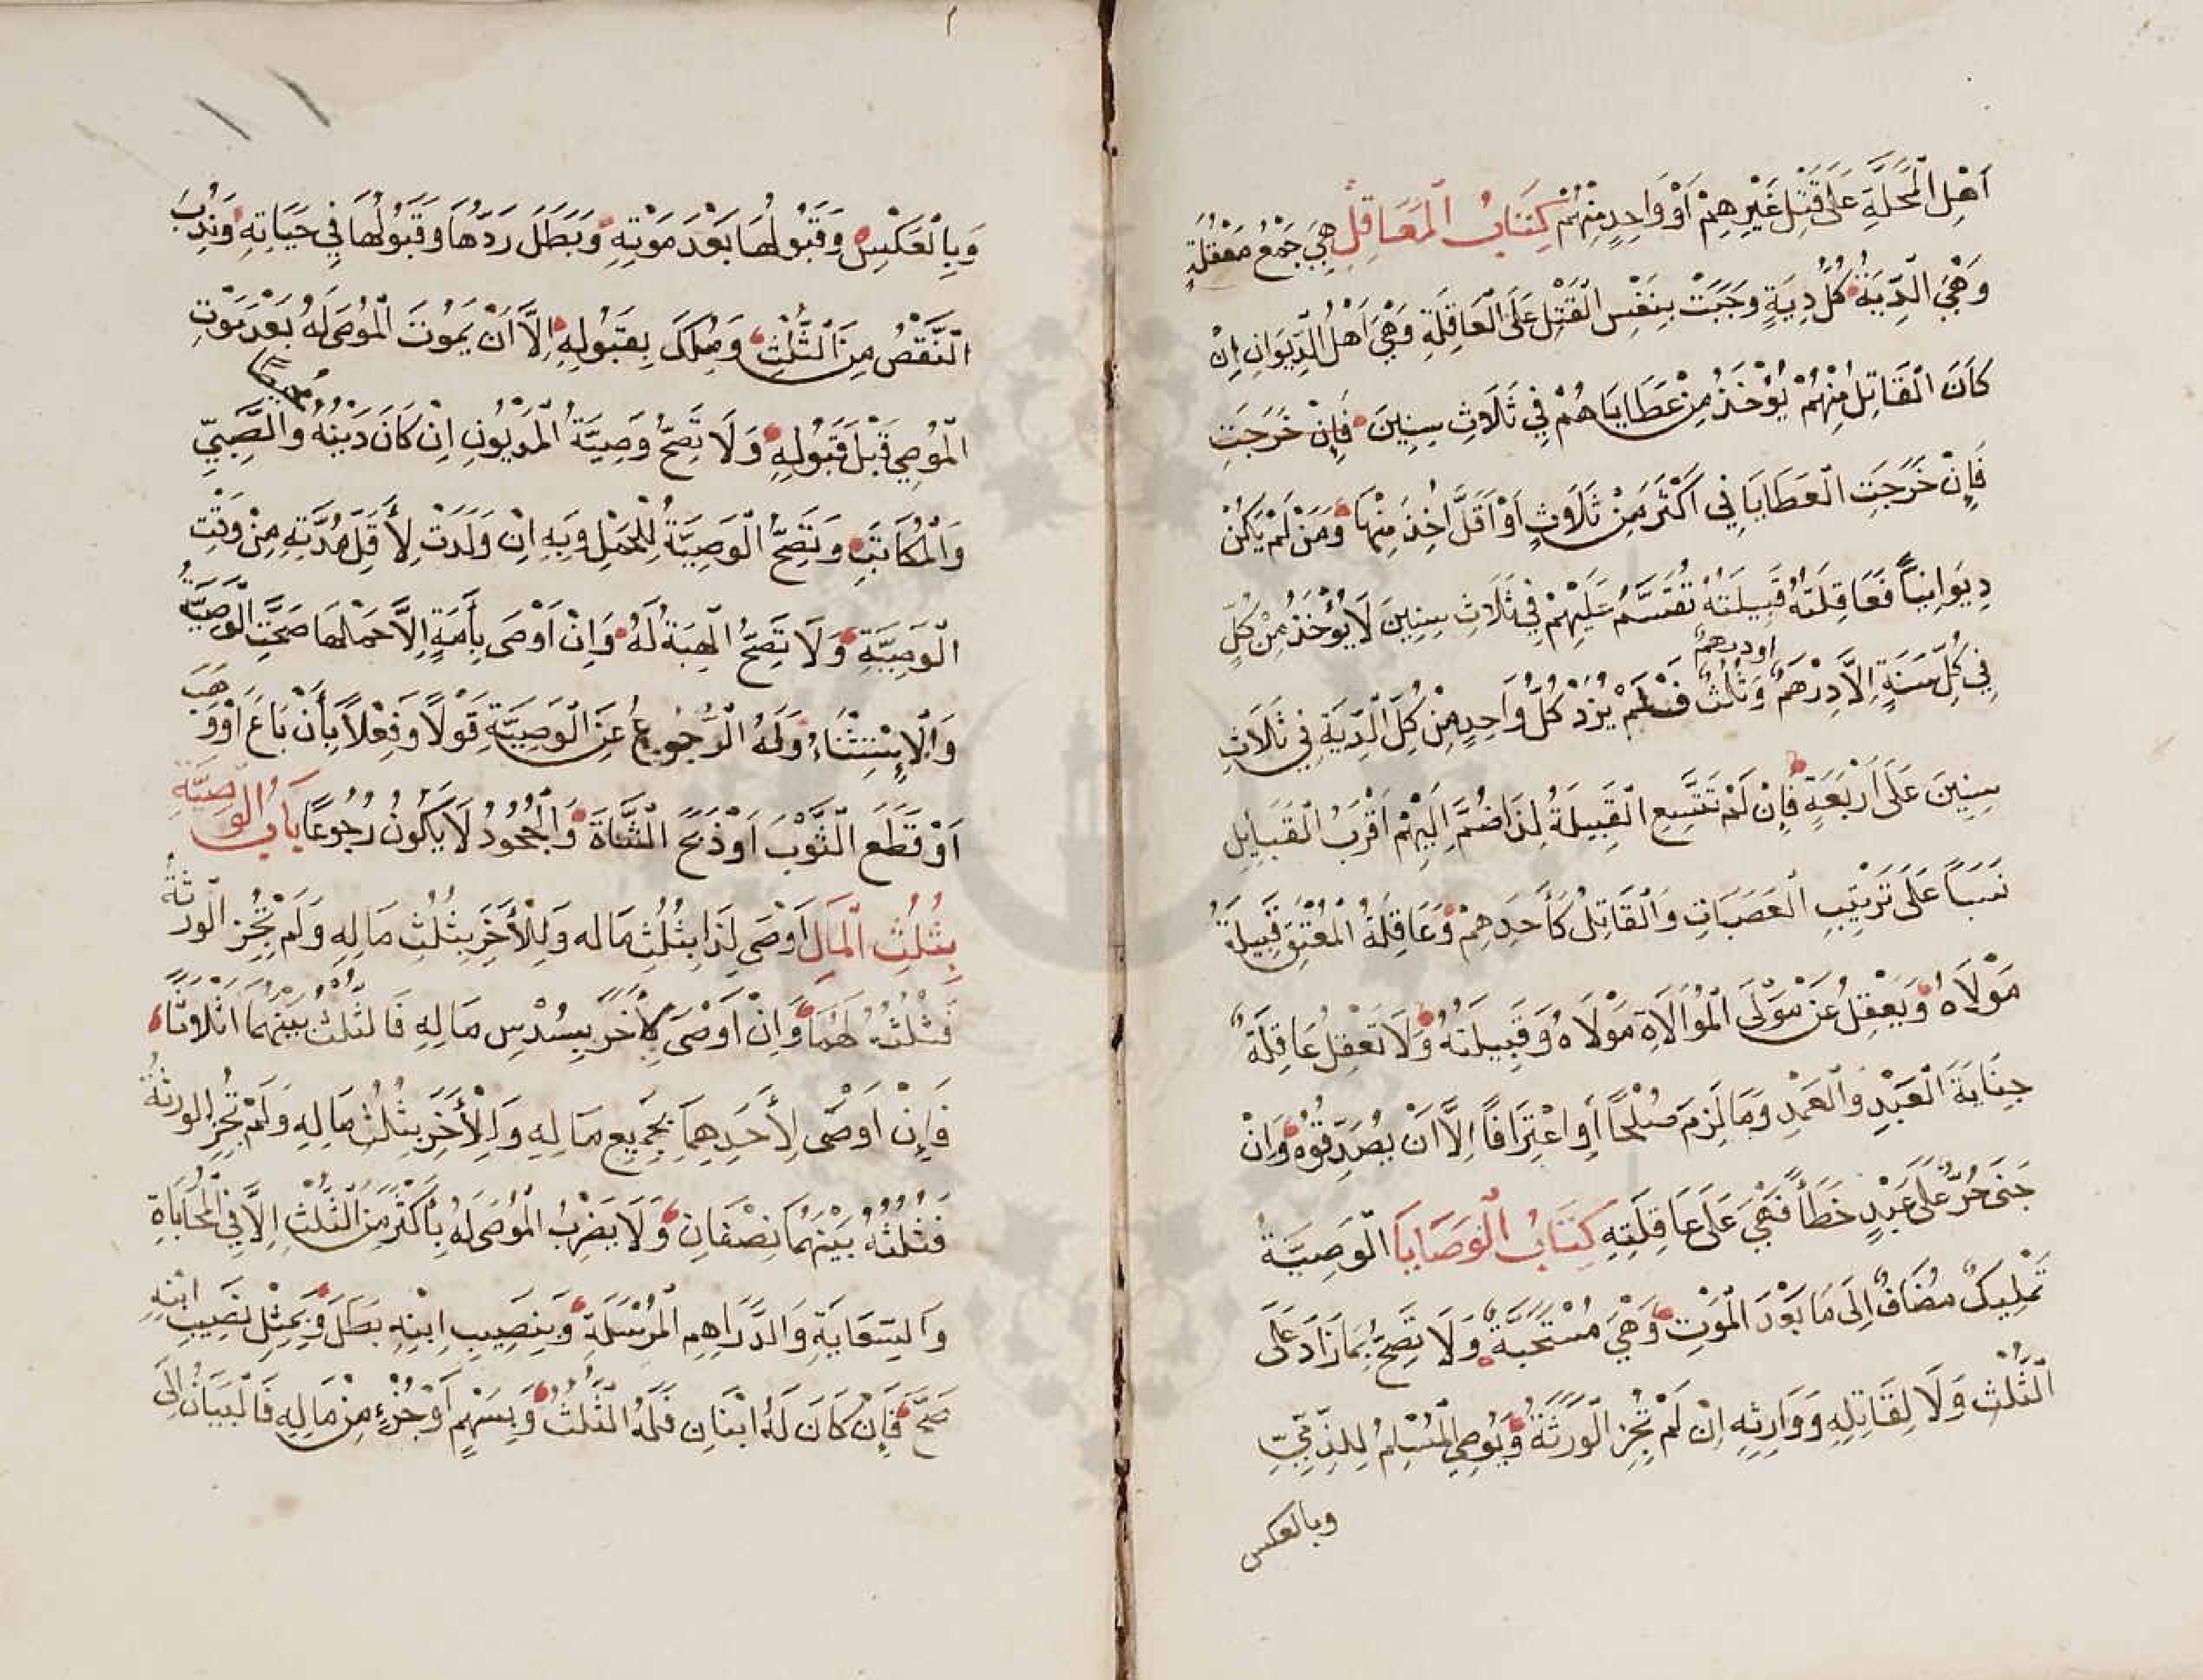 اَهْلِ الْمَحَلَّةِ عَلَى قَتْلِ غَيْرِهِمْ اَوْ وَاحِدٍ مِنْهُمْ كِتَابُ الْمَعَاقِلِ هِيَ جَمْعُ مَعْقُلَةٍ
وَهْيَ الدِّيَةُ كُلُّ دِيَةٍ وَجَبَتْ بِنَفْسِ الْقَتْلِ عَلَى الْعَاقِلَةِ وَهْيَ اَهْلُ الدِّيْوَانِ اِنْ
كَانَ الْقَاتِلُ مِنْهُمْ يُؤْخَذُ مِنْ عَطَايَاهُمْ فِي ثَلَاثِ سِنِينَ فَاِنْ خَرَجَتِ
فَاِنْ خَرَجَتِ الْعَطَايَا فِي اَكْثَرَ مِنْ ثَلَاثٍ اَوْ اَقَلَّ اُخِذَ مِنْهَا وَمَنْ لَمْ يَكُنْ
دِيوَانِيًّا فَعَاقِلَتُهُ قَبِيلَتُهُ تُقَسَّمُ عَلَيْهِمْ فِي ثَلَاثِ سِنِينَ لَا يُؤْخَذُ مِنْ كُلٍّ
فِي كُلِّ سَنَةٍ اِلَّا دِرْهَمٌ وَثُلُثٌ فَلَمْ يُزَدْ كُلُّ وَاحِدٍ مِنْ كُلِّ الدِّيَةِ فِي ثَلَاثِ
اودرهم
سِنِينَ عَلَى اَرْبَعَةٍ فَاِنْ لَمْ تَتَّسِعِ الْقَبِيلَةُ لِذَا ضُمَّ اِلَيْهِمْ اَقْرَبُ الْقَبَائِلِ
نَسَبًا عَلَى تَرْتِيبِ الْعَصَبَاتِ وَالْقَاتِلُ كَأَحَدِهِمْ وَعَاقِلَةُ الْمُعْتَقِ قَبِيلَةُ
مَوْلَاهُ وَيَعْقِلُ عَنْ مَوْلَى الْمُوَالَاةِ مَوْلَاهُ وَقَبِيلَتُهُ وَلَا تَعْقِلُ عَاقِلَةٌ
جِنَايَةَ الْعَبْدِ وَالْعَمْدِ وَمَا لَزِمَ صُلْحًا اَوِ اعْتِرَافًا اِلَّا اَنْ يُصَدِّقُوهُ وَاِنْ
جَنَى حُرٌّ عَلَى عَبْدٍ خَطَأً فَهْيَ عَلَى عَاقِلَتِهِ كِتَابُ الْوَصَايَا الْوَصِيَّةُ
تَمْلِيكٌ مُضَافٌ اِلَى مَا بَعْدَ الْمَوْتِ وَهْيَ مُسْتَحَبَّةٌ وَلَا تَصِحُّ بِمَا زَادَ عَلَى
الثُّلُثِ وَلَا لِقَاتِلِهِ وَوَارِثِهِ اِنْ لَمْ تُجِزِ الْوَرَثَةُ وَيُوصِي الْمُسْلِمُ لِلذِّمِّيِّ
وبالعكس
وَبِالْعَكْسِ وَقَبُولُهَا بَعْدَ مَوْتِهِ وَبَطَلَ رَدُّهَا وَقَبُولُهَا فِي حَيَاتِهِ وَنُدِبَ
النَّقْصُ مِنَ الثُّلْثِ وَمُلِكَ بِقَبُولِهِ اِلَّا اَنْ يَمُوتَ الْمُوصَى لَهُ بَعْدَ مَوْتِ
الْمُوصِي قَبْلَ قَبُولِهِ وَلَا تَصِحُّ وَصِيَّةُ الْمَدْيُونِ اِنْ كَانَ دَيْنُهُ وَالصَّبِيِّ
وَالْمُكَاتَبِ وَتَصِحُّ الْوَصِيَّةُ لِلْحَمْلِ وَبِهِ اِنْ وَلَدَتْ لِأَقَلِّ مُدَّتِهِ مِنْ وَقْتِ
الْوَصِيَّةِ وَلَا تَصِحُّ الْهِبَةُ لَهُ وَاِنْ اَوْصَى بِأَمَةٍ اِلَّا حَمْلَهَا صَحَّتِ الْوَصِيَّةُ
وَالْاِسْتِثْنَاءُ وَلَهُ الرُّجُوعُ عَنِ الْوَصِيَّةِ قَوْلًا وَفِعْلًا بِأَنْ بَاعَ اَوْ وَهَبَ
اَوْ قَطَعَ الثَّوْبَ اَوْ ذَبَحَ الشَّاةَ وَالْجُحُودُ لَا يَكُونُ رُجُوعًا بَابُ الْوَصِيَّةِ
بِثُلُثِ الْمَالِ اَوْصَى لِذَا بِثُلُثِ مَالِه وَلِلْأَخَرِ بِثُلُثِ مَالِهِ وَلَمْ تُجِزِ الْوَرَثَةُ
فَثُلْثُهُ لَهُمَا وَاِنْ اَوْصَى لِأَخَرَ بِسُدْسِ مَالِهِ فَالثُّلُثُ بَيْنَهُمَا اَثْلَاثًا
فَاِنْ اَوْصَى لِأَحَدِهِمَا بِجَمِيعِ مَالِهِ وَلِلْأَخَرِ بِثُلُثِ مَالِهِ وَلَمْ تُجِزِ الْوَرَثَةُ
فَثُلُثُهُ بَيْنَهُمَا نِصْفَانِ وَلَا يَضْرِبُ الْمُوصَى لَهُ بِأَكْثَرَ مِنَ الثُّلُثِ اِلَّا فِي الْمُحَابَاةِ
وَالسِّعَايَةِ وَالدَّرَاهِمِ الْمُرْسَلَةِ وَبِنَصِيبِ ابْنِهِ بَطَلَ وَبِمِثْلِ نَصِيبِ ابْنِهِ
صَحَّ فَاِنْ كَانَ لَهُ ابْنَانِ فَلَهُ الثُّلُثُ وَبِسَهْمٍ اَوْ جُزْءٍ مِنْ مَالِهِ فَالْبَيَانُ اِلَى